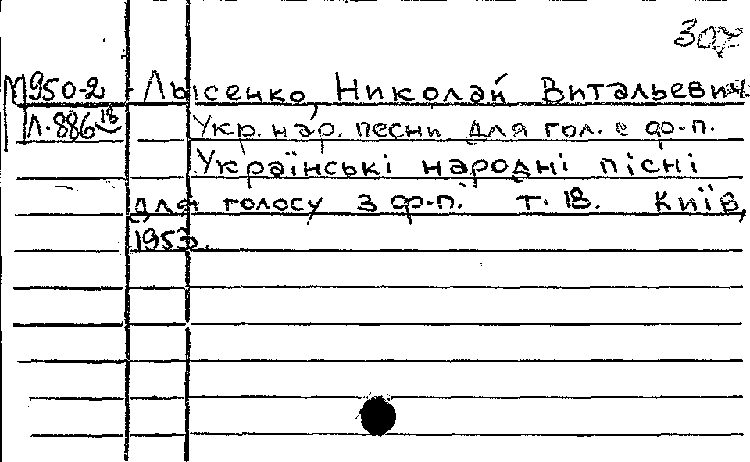 307
М950-2 Лысенко, Николай Витальевич
Л.886 18 Укр. нар. песни для гол. с ф-п.
Українські народні пісні
для голосу з ф-п. т. 18. Київ,
1953.